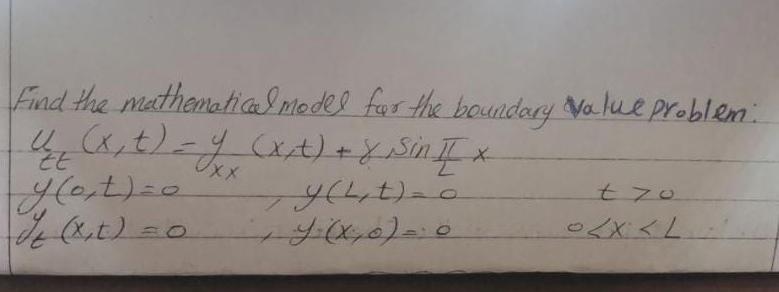 Find the mathematical model for the boundary value problem:
u_tt (x,t) = y_xx (x,t) + γ sin π/L x
y(0,t)=0 , y(L,t)=0 t>0
y_t (x,t) =0 , y(x,0)=0 0<x<L